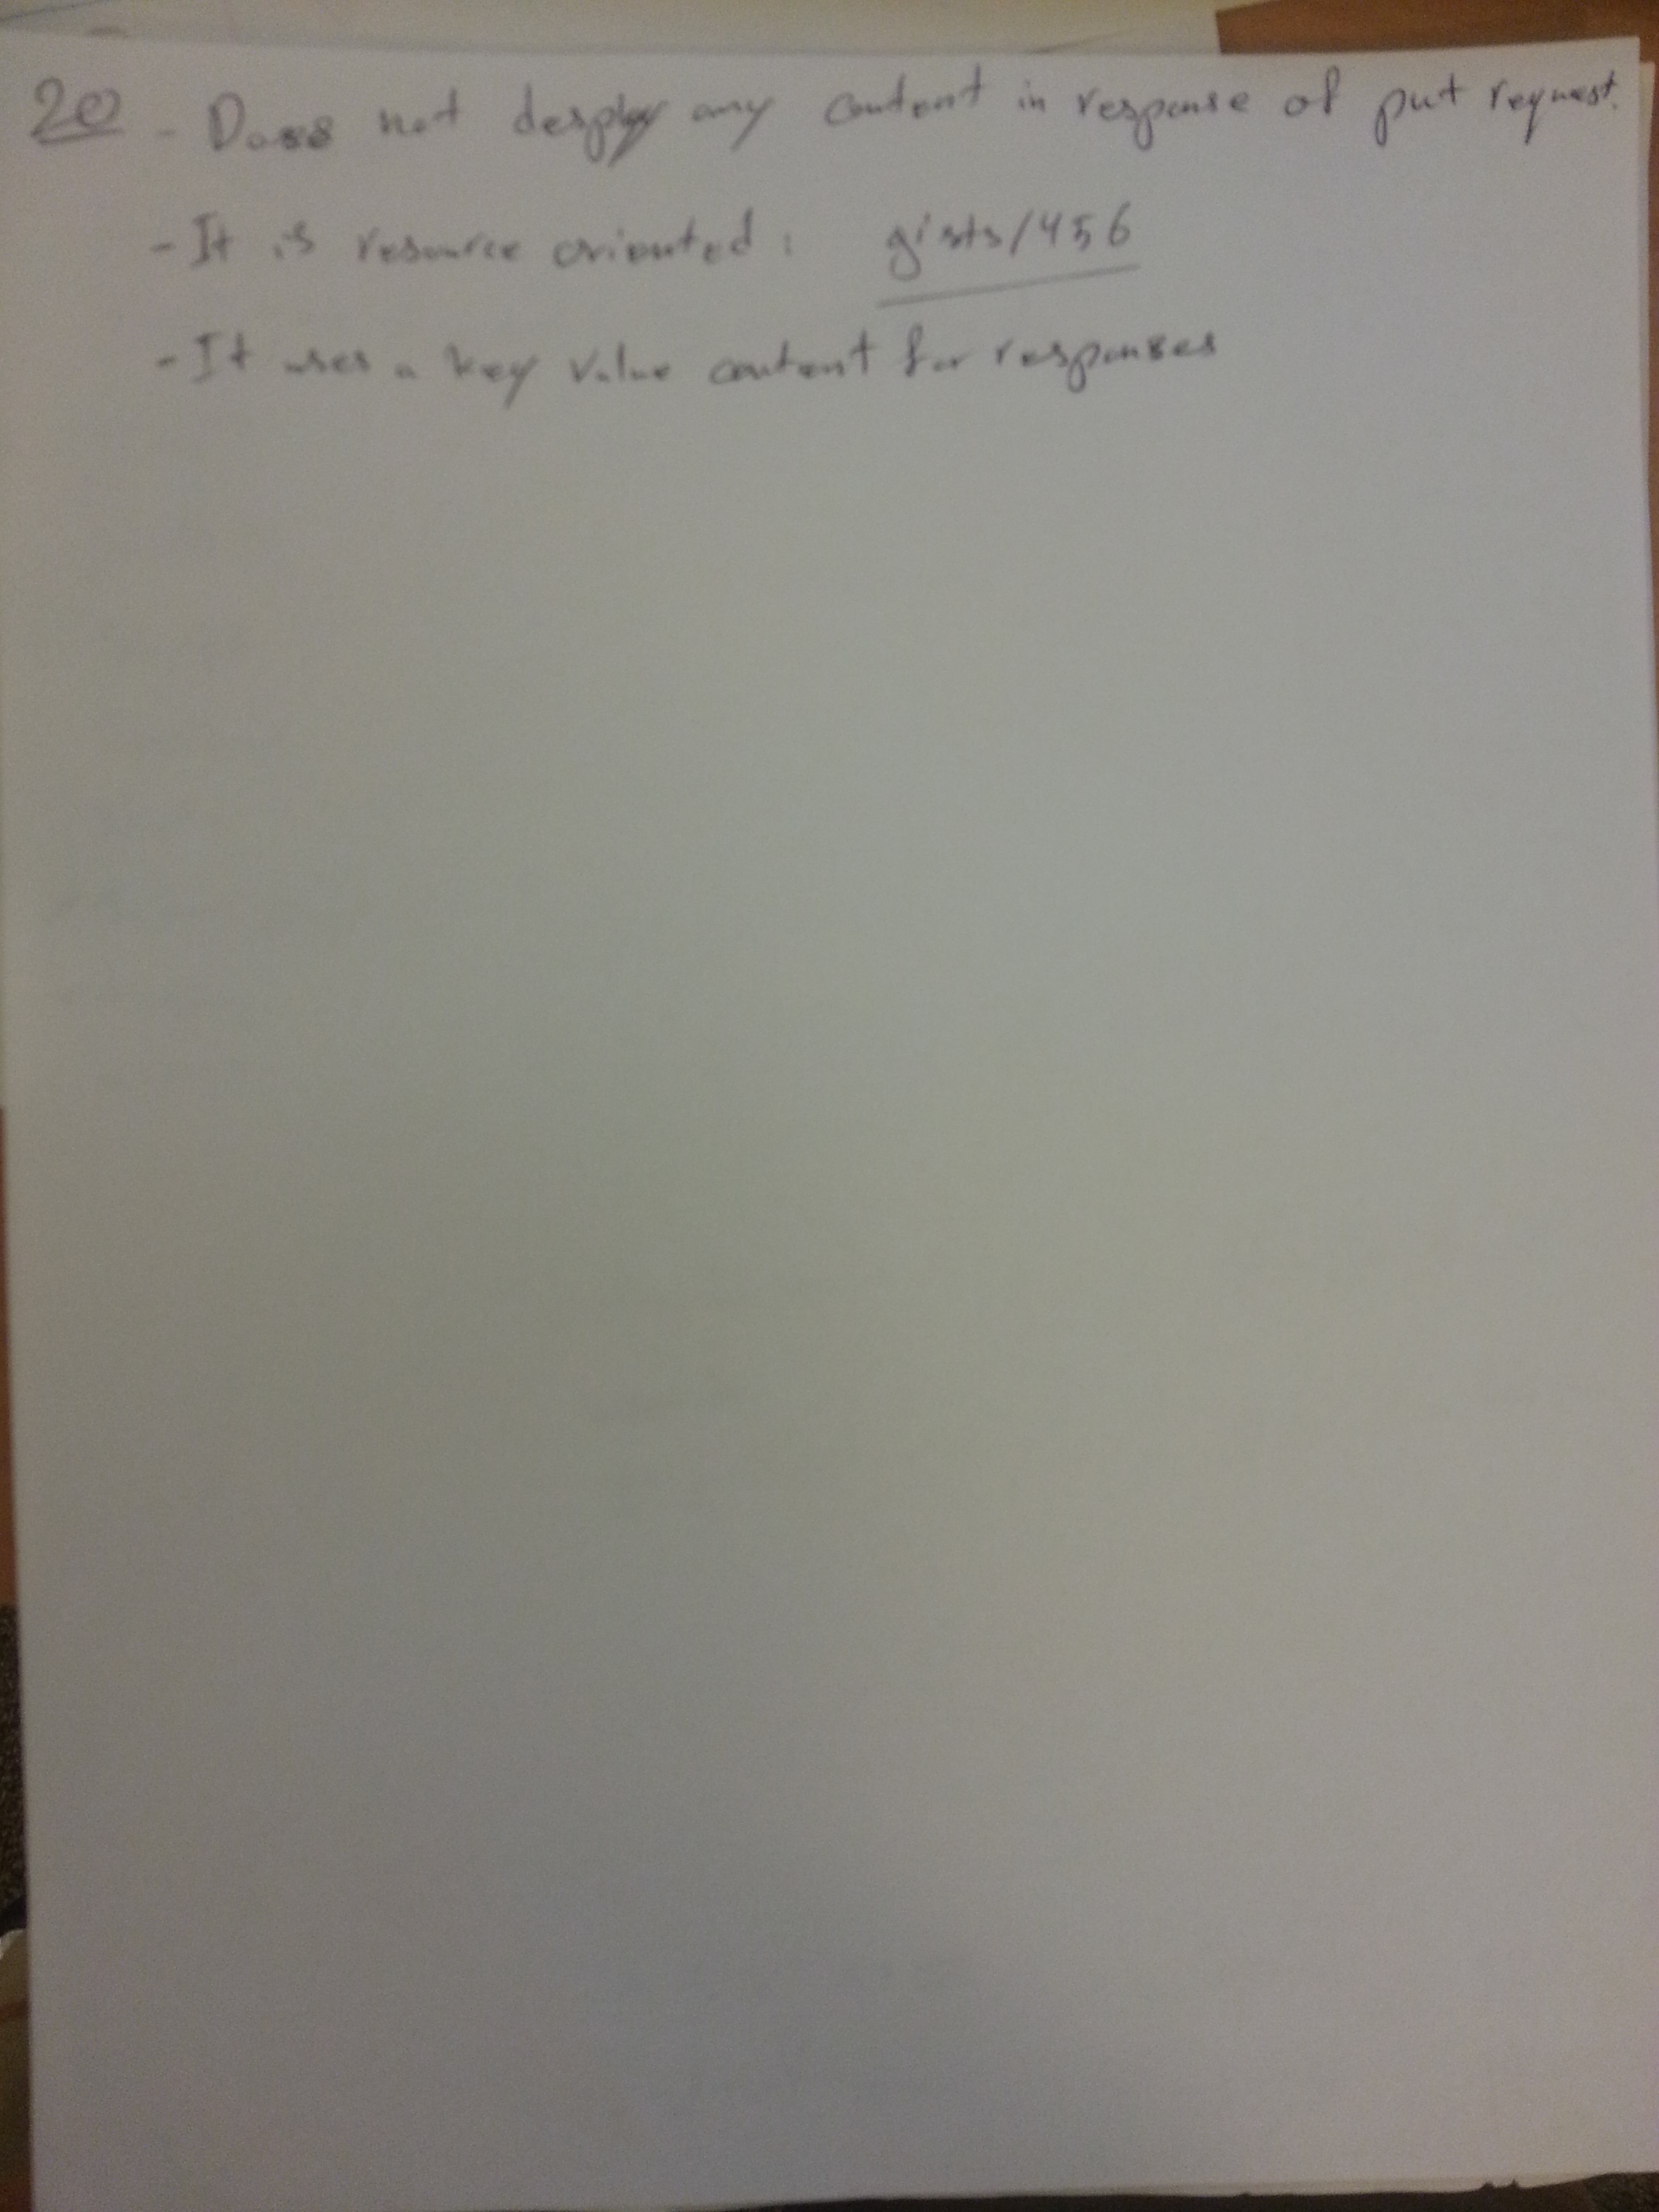 20 - Does not desplay any content in response of put request.
- It is resource oriented : gists/456
- It uses a key value content for responses